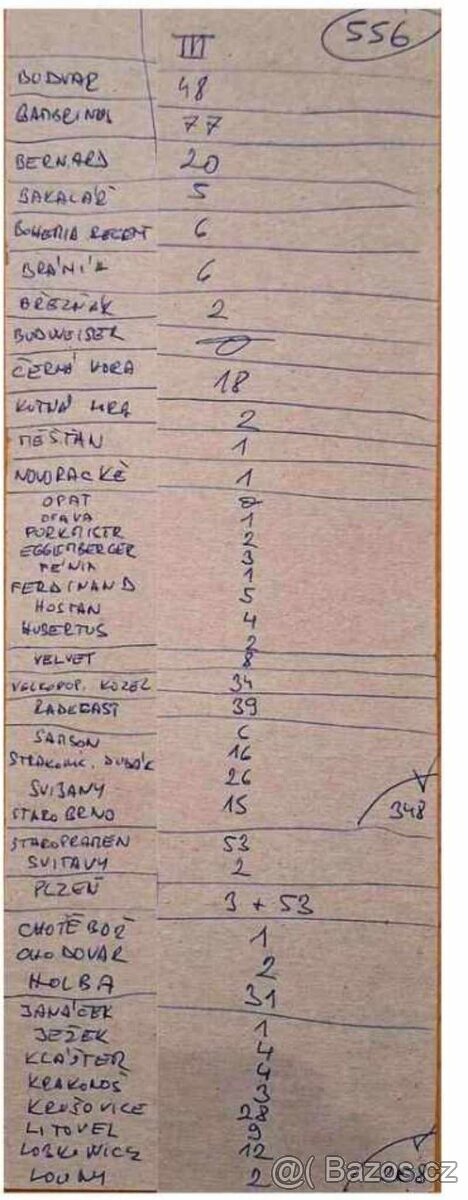 III 556
BUDVAR 48
GAMBRINUS 77
BERNARD 20
BAKALÁŘ 5
BOHEMIA REGENT 6
BRÁNÍK 6
BŘEZŇÁK 2
BUDWEISER 0
ČERNÁ HORA 18
KUTNÁ HORA 2
MĚŠŤAN 1
NOVOPACKÉ 1
OPAT 2
OPAVA 1
PURKMISTR 2
EGGENBERGER 3
PÉNIA 1
FERDINAND 5
HOSTAN 4
HUBERTUS 2
VELVET 8
VELKOPOP. KOZEL 34
RADEGAST 39
SAMSON 6
STRAKONIC. DUDÁK 16
SVIJANY 26
STAROBRNO 15 348
STAROPRAMEN 53
SVITAVY 2
PLZEŇ 3 + 53
CHOTĚBOŘ 1
CHODOVAR 2
HOLBA 31
JANÁČEK 1
JEŽEK 4
KLÁŠTER 4
KRAKONOŠ 3
KRUŠOVICE 28
LITOVEL 9
LOBKOWICZ 12
LOUNY 2
@( Bazos.cz